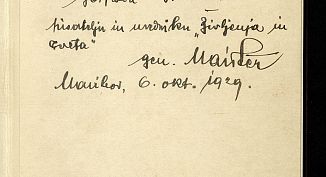 pisatelju in uredniku „Življenja in
sveta"
gen. Maister
Maribor, 6. okt. 1929.